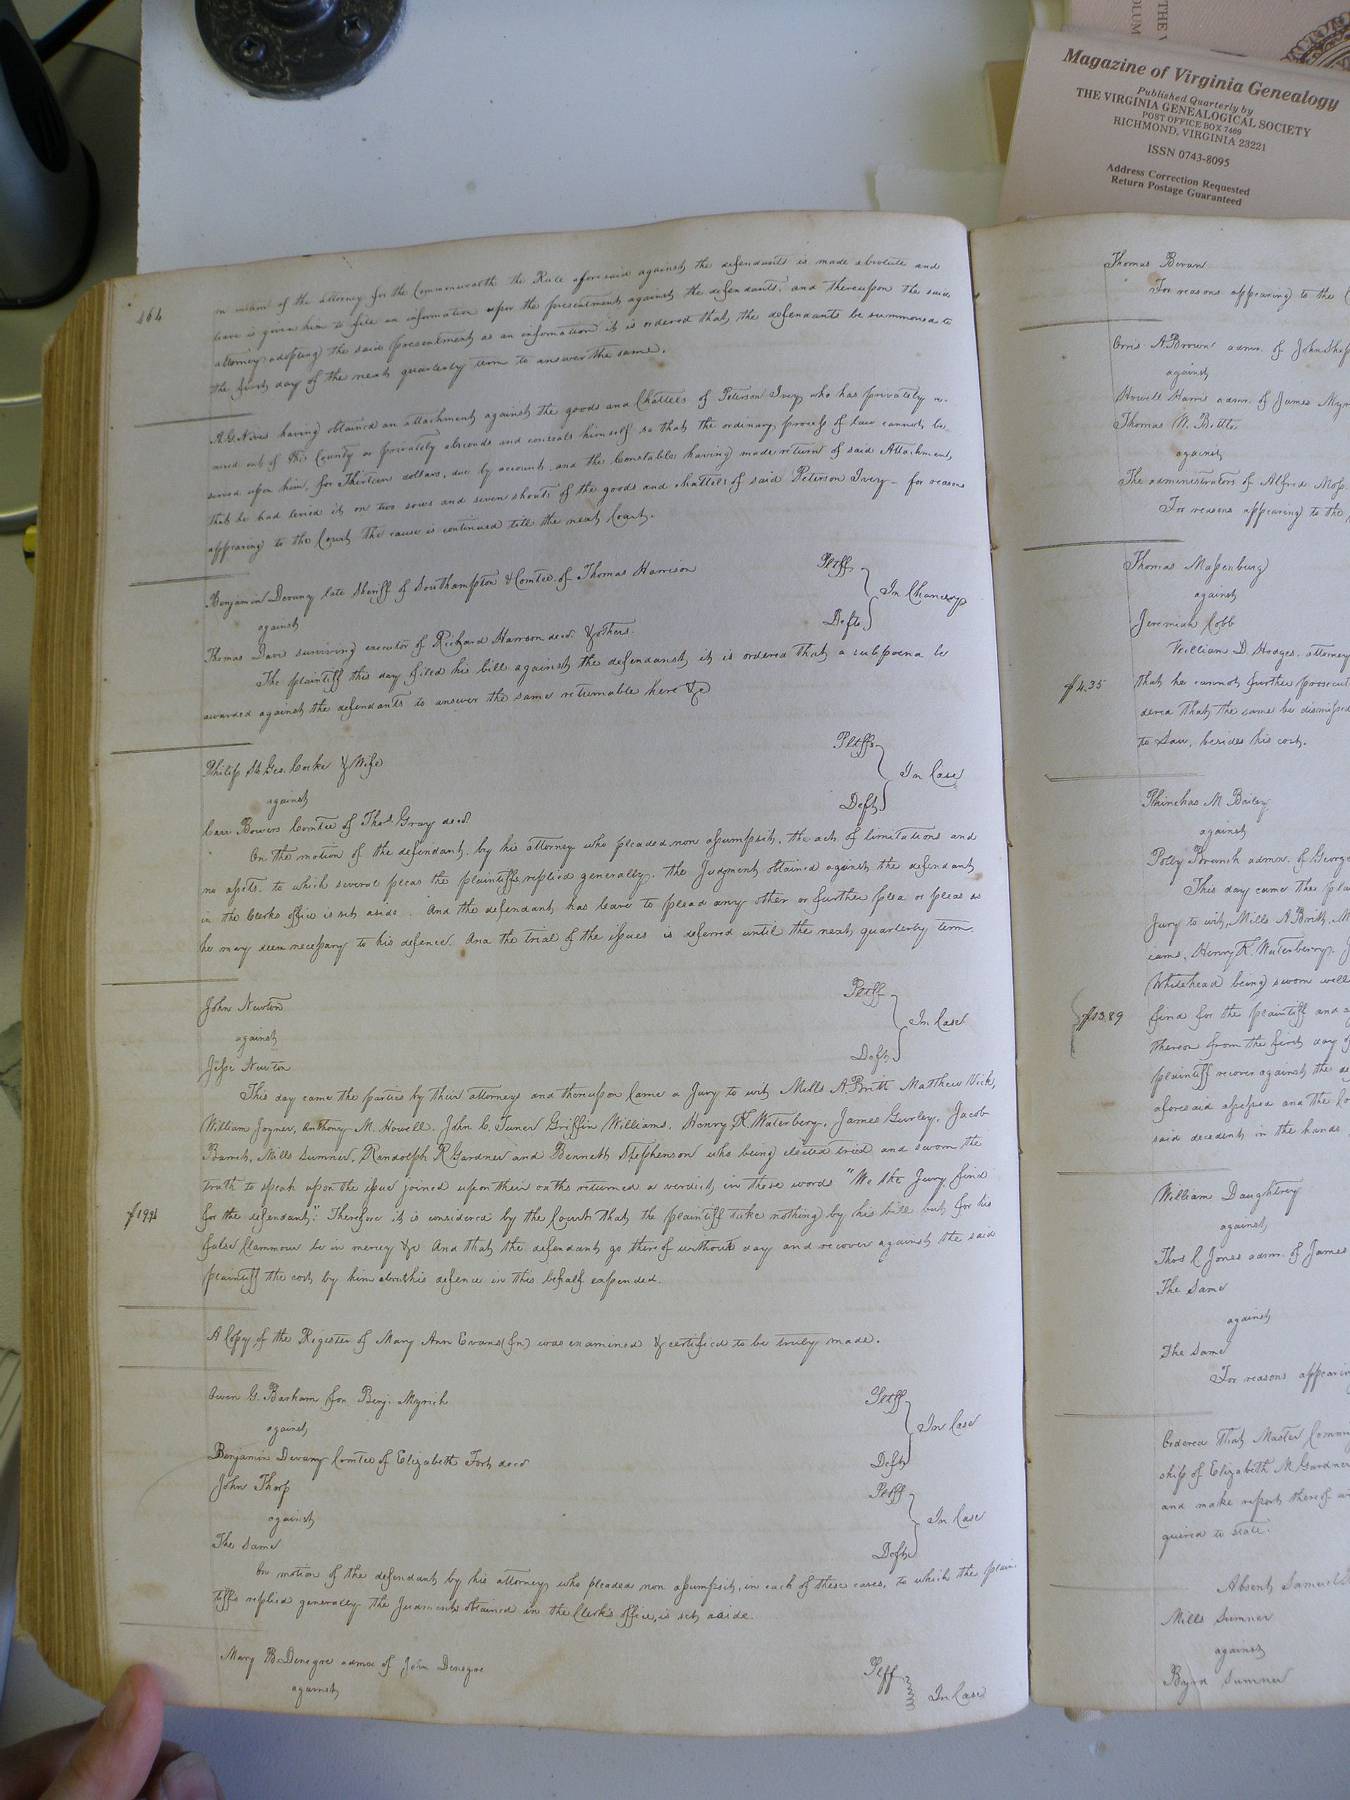 THE V
OLUM
Magazine of Virginia Genealogy
Published Quarterly by
THE VIRGINIA GENEALOGICAL SOCIETY
POST OFFICE BOX 7469
RICHMOND, VIRGINIA 23221
ISSN 0743-8095
Address Correction Requested
Return Postage Guaranteed
464
on motion of the attorney for the Commonwealth the Rule aforesaid against the defendants is made absolute and
leave is given him to file an information upon the presentment against the defendants, and thereupon the said
attorney adopting the said presentment as an information it is ordered that the defendants be summoned to
the first day of the next quarterly term to answer the same.
having obtained an attachment against the goods and Chattels of Peterson Ivey who has privately re-
moved out of this County or privately absconds and conceals himself so that the ordinary process of law cannot be
served upon him, for Thirteen dollars, due by account, and the Constable having made return of said Attachment
that he had levied it on two sows and seven shoats of the goods and chattels of said Peterson Ivey - for reasons
appearing to the Court the cause is continued till the next Court.
Benjamin Devany late Sheriff of Southampton & Comtee. of Thomas Harrison Pltff
against In Chancery
Thomas Dave surviving executor of Richard Harrison decd. & others. Defts
The plaintiff this day filed his bill against the defendants it is ordered that a subpoena be
awarded against the defendants to answer the same returnable here &c
Philip St. Geo. Cocke & Wife Pltffs
against In Case
Carr Bowers Comtee of Thos. Gray decd. Deft
On the motion of the defendant by his attorney who pleaded non assumpsit, the act of limitations and
no assets, to which several pleas the plaintiffs replied generally, the Judgment obtained against the defendant
in the Clerks office is set aside. And the defendant has leave to plead any other or further plea or pleas as
he may deem necessary to his defence. And the trial of the issues is deferred until the next quarterly term.
John Newton Pltff
against In Case
Jesse Newton Deft
This day came the parties by their attorneys and thereupon came a Jury to wit Mills A. Britt Matthew Vick,
William Joyner, Anthony M. Howell, John C. Turner Griffin Williams, Henry K. Waterbery, James Gurley, Jacob
Barrett, Mills Sumner, Randolph R Gardner and Bennett Stephenson who being elected tried and sworn the
truth to speak upon the issue joined upon their oaths returned a verdict in these words "We the Jury find
for the defendant". Therefore it is considered by the Court that the plaintiff take nothing by his bill but for his
false clammour be in mercy &c And that the defendant go thereof without day and recover against the said
plaintiff the cost by him about his defence in this behalf expended.
A Copy of the Register of Mary Ann Evans (fn) was examined & certified to be truly made.
Owen G. Barham for Benj. Myrick Pltff
against In Case
Benjamin Devany Comtee of Elizabeth Fort decd Deft
John Thorp Pltff
against In Case
The Same Deft
On motion of the defendant by his attorney who pleaded non assumpsit, in each of these cases, to which the plain-
tiffs replied generally the Judments obtained in the Clerk's office, is set aside.
Mary B. Denegre admx of John Denegre Pltff
against In Case
Thomas Bevan
For reasons appearing to the
Orris A. Brown admr. of John Shep
against
Howell Harris admr. of James Myr
Thomas N. Bittle
against
The administrators of Alfred Moss
For reasons appearing to the
Thomas Massenburg
against
Jeremiah Cobb
William D. Hodges, attorney
$4.35 that he cannot further prosecut
dered that the same be dismissed
to Law, besides his cost.
Phinehas M. Bailey
against
Polly Branch admx. of George
This day came the pla
Jury to wit, Mills A. Britt, M
iams, Henry K. Waterberry, J
Whitehead being sworn well
$13.89 find for the plaintiff and a
thereon from the first day of
plaintiff recover against the de
aforesaid assessed and the Co
said decedent in the hands
William Daughtrey
against
Thos C. Jones admr. of James
The Same
against
The Same
For reasons appearin
Ordered that Master Commi
ship of Elizabeth M Gardner
and make report thereof wi
quired to state.
Absent Samuel
Mills Sumner
against
Byrd Sumner